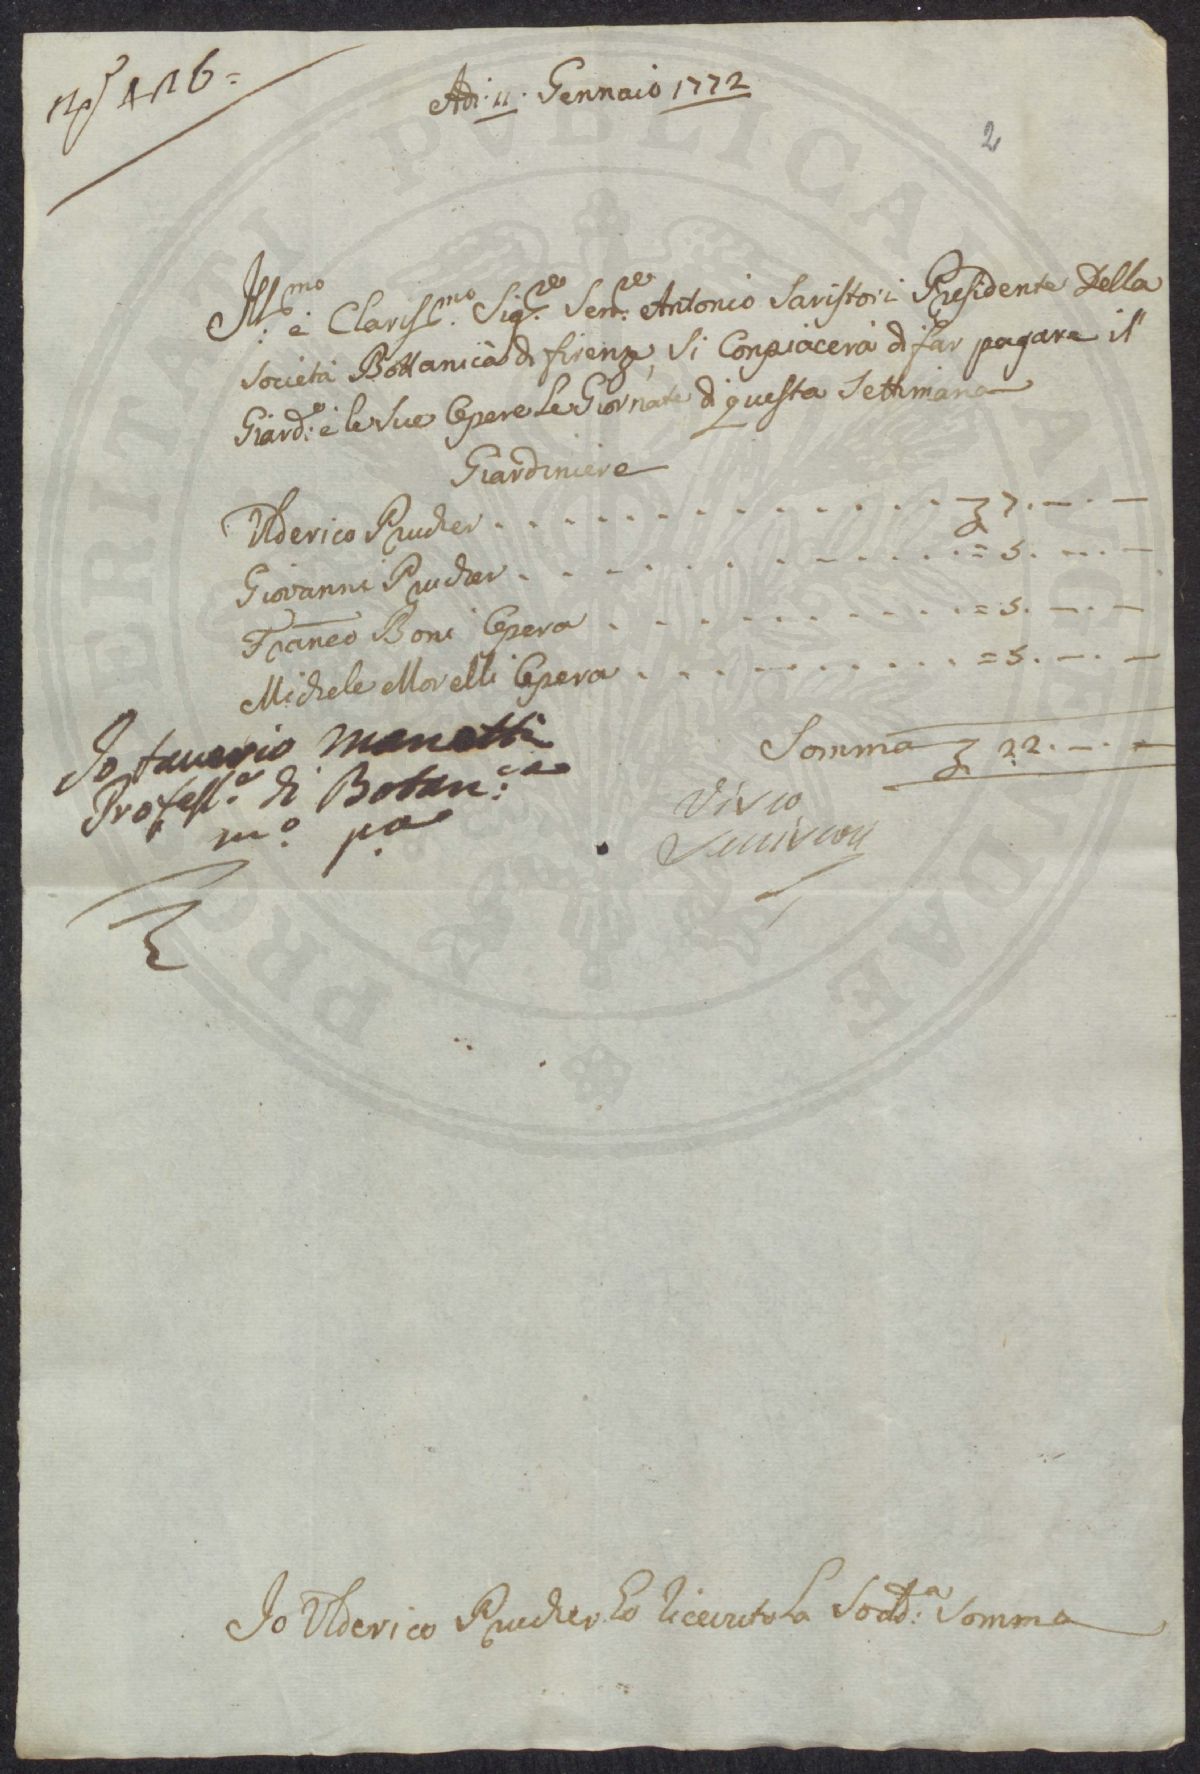 Adi 11. Gennaio 1772
2
Ill.mo e Clariss.mo Sig.re Sen.re Antonio Saristori Presidente Della
Società Bottanica di firenze, Si Conpiacerà di far pagare il
Giard.e e le Sue Opere Le Giornate di questa Settimana
Giardiniere
Vlderico Prucher . . . . . . . . . . . . . . £ 7. — . —
Giovanni Prucher . . . . . . . . . . . . . . = 5. — . —
Franco Boni Opera . . . . . . . . . . . = 5. — . —
Michele Morelli Opera . . . . . . . . . . = 5. — . —
Somma £ 22. — . —
Io Saverio Manetti
Profess.e di Botan.ca
m.o p.a
Visto
Io Vlderico Prucher ho riceuuto La Sodd.a Somma
PROSPERITATI PVBLICAE AVGENDAE